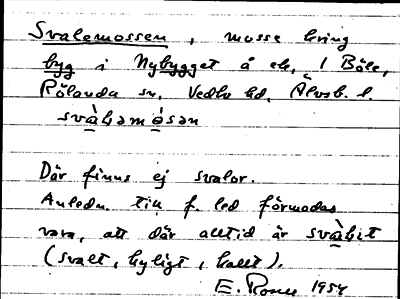 Svalemossen, mosse kring
byg i Nybygget å ek, 1 Böle,
Rölanda sn, Vedbo hd, Älvsb. l.
svàləmósən
Där finns ej svalor.
Anledn. till f. led förmodas
vara, att där alltid är svàlit
(svalt, kyligt, kallt).
E. 1954